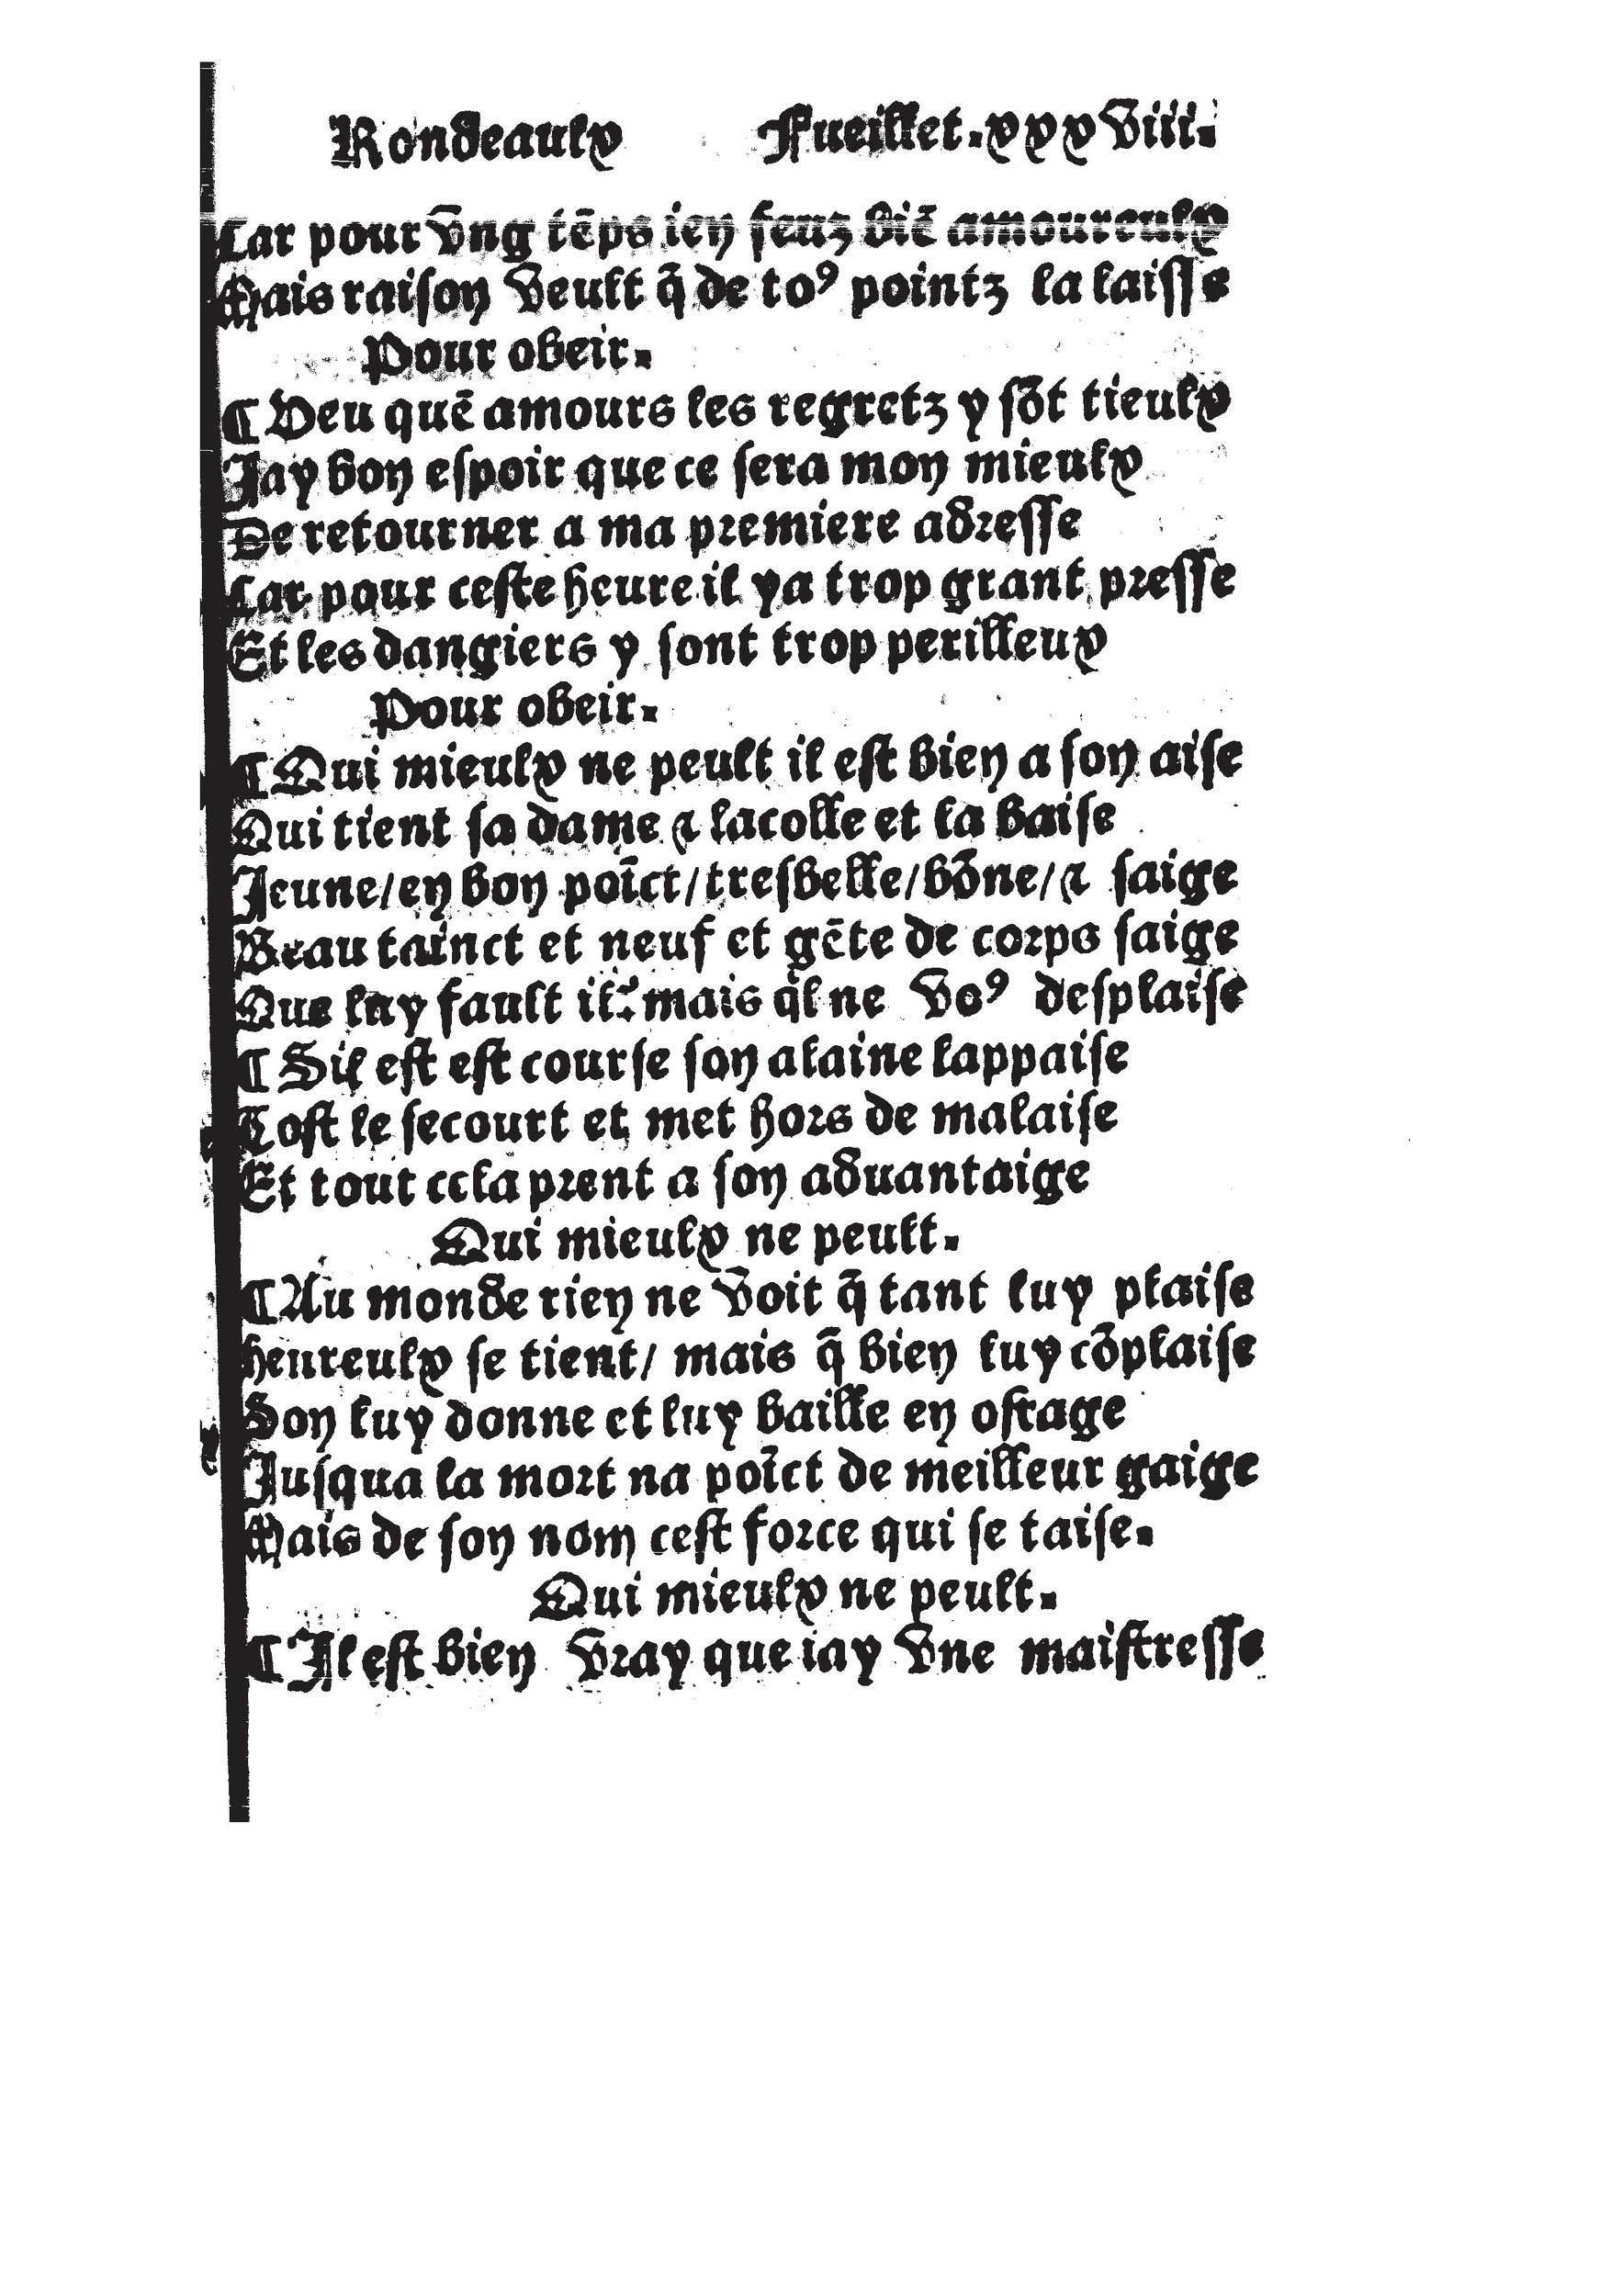 Rondeaulx Fueillet.xxxviii.
Car pour vng tēps ien feuz biē amoureulx
Mais raiſon veult q̄ de to⁹ pointz la laiſſe
Pour obeir.
¶ Veu quē amours les regretz y ſōt tieulx
Jay bon eſpoir que ce ſera mon mieulx
De retourner a ma premiere adreſſe
Car pour ceſte heure il ya trop grant preſſe
Et les dangiers y ſont trop perilleux
Pour obeir.
¶ Qui mieulx ne peult il eſt bien a ſon aiſe
Qui tient ſa dame ⁊ lacolle et la baiſe
Jeune/en bon poīct/treſbelle/bōne/⁊ ſaige
Beau tainct et neuf et gēte de corps ſaige
Que luy fault il: mais q̄l ne vo⁹ deſplaiſe
¶ Sil eſt eſt courſe ſon alaine lappaiſe
Toſt le ſecourt et met hors de malaiſe
Et tout ccla prent a ſon aduantaige
Qui mieulx ne peult.
¶ Au monde rien ne voit q̄ tant luy plaiſe
heureulx ſe tient/ mais q̄ bien luy cōplaiſe
Son luy donne et luy baille en oſtage
Juſqua la mort na poīct de meilleur gaige
Mais de ſon nom ceſt force qui ſe taiſe.
Qui mieulx ne peult.
¶ Il eſt bien vray que iay vne maiſtreſſe